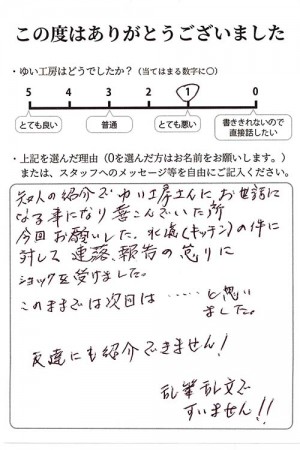 この度はありがとうございました
・ゆい工房はどうでしたか？（当てはまる数字に○）
5 4 3 2 1 0
とても良い 普通 とても悪い 書ききれないので直接話したい
・上記を選んだ理由（0を選んだ方はお名前をお願いします。）
または、スタッフへのメッセージ等を自由にご記入ください。
知人の紹介でゆい工房さんにお世話に
なる事になり喜こんでいた所
今回お願いした、水漏(キッチン)の件に
対して連落、報告の怠りに
ショックを受けました。
このままでは次回は……と思い
ました。
友達にも紹介できません!
乱筆乱文で
すいません!!